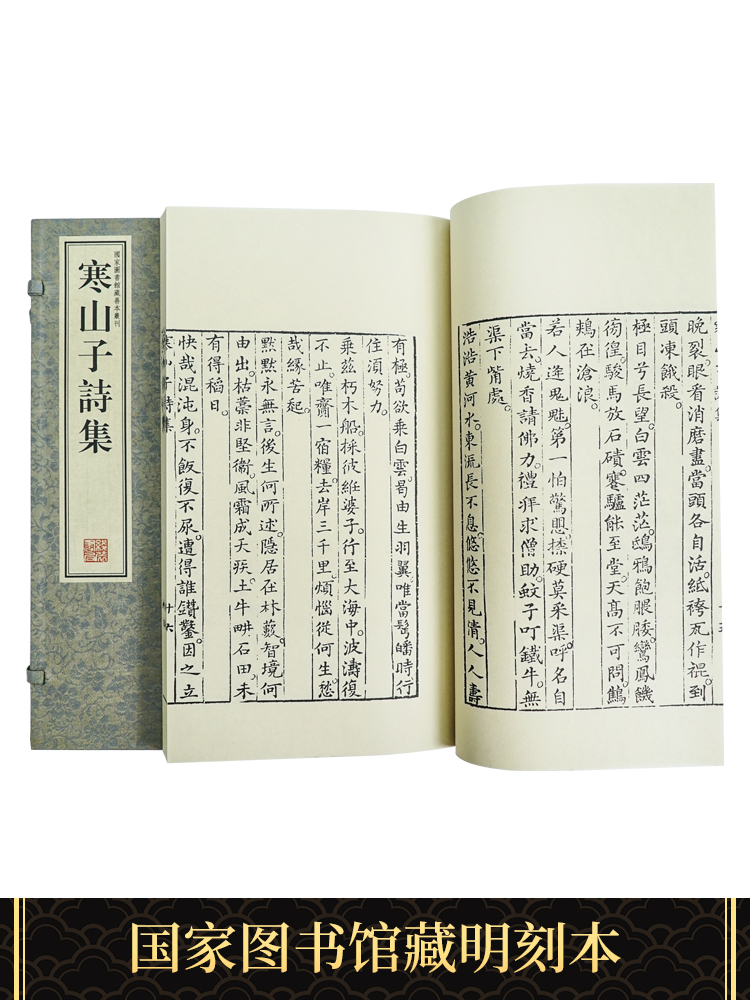 國家圖書館藏善本叢刊
寒山子詩集
晚裂眼看。消磨盡。當頭各自活。紙袴瓦作裩。到
頭凍餓殺。
極目兮長望。白雲四茫茫。鴟鴉飽腲腇。鸞鳳饑
徨。駿馬放石磧。蹇驢能至堂。天高不可問。
在滄浪。
若人逢鬼魅。第一怕驚懅。捺硬莫采渠。呼名自
當去。燒香請佛力。禮拜求僧助。蚊子叮鐵牛。無
渠下觜處。
浩浩黃河水。東流長不息。悠悠不見清。人人壽
有極。苟欲乘白雲。曷由生羽翼。唯當鬒時行
住須努力。
乘茲朽木船。採彼紝婆子。行至大海中。波濤復
不止。唯齎一宿糧。去岸三千里。煩惱從何生。愁
哉緣苦起。
默默永無言。後生何所述。隱居在林藪。智境何
由出。枯槁非堅衞。風霜成夭疾。土牛耕石田。未
有得稻日。
快哉混沌身。不飯復不尿。遭得誰鑽鑿。因之立
寒山子詩集 十六
国家图书馆藏明刻本